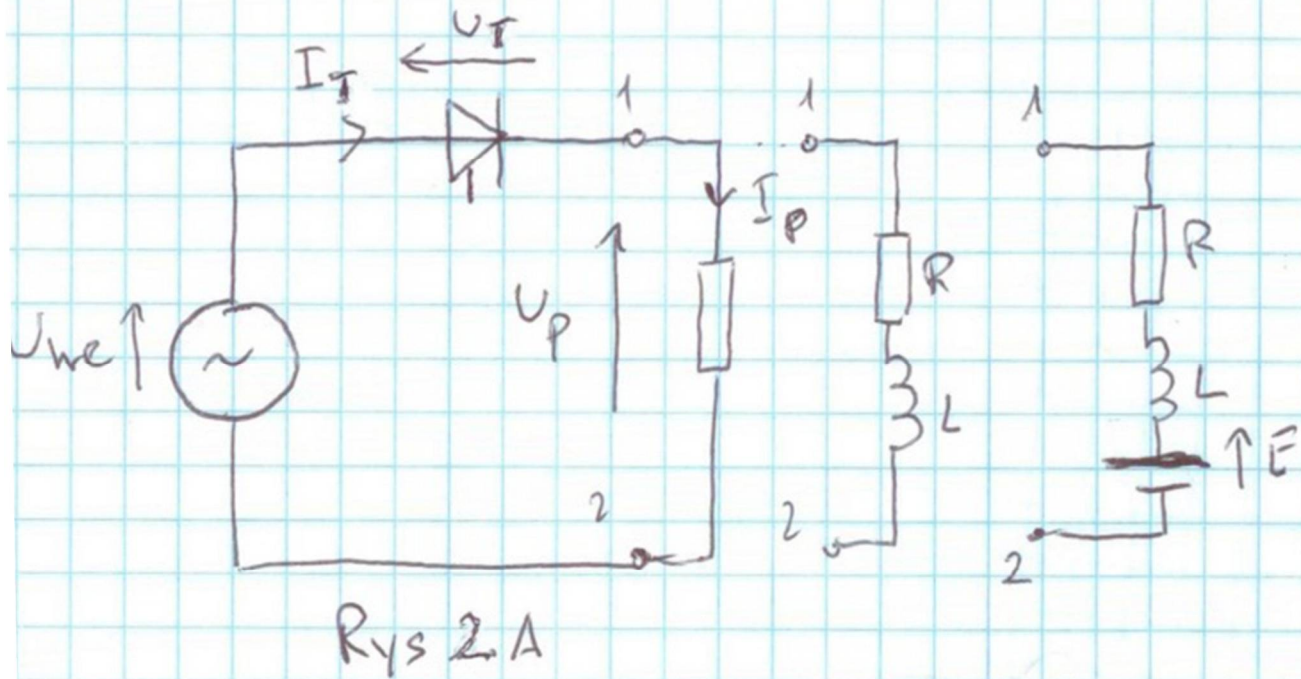 U_T
I_T
1
1
1
I_P
R
R
U_P
U_we
~
L
L
E
2
2
2
Rys 2 A